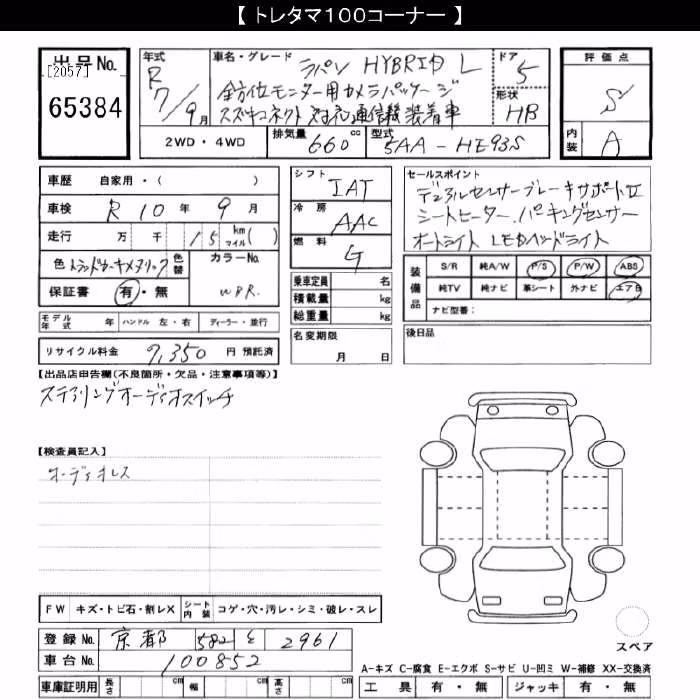 【 トレタマ100コーナー 】
出品No.
[2057]
65384
年式 R 7/9月
車名・グレード ラパン HYBRID L
全方位モニター用カメラパッケージ
スズキコネクト対応通信機装着車
ドア 5
形状 HB
評価点 S
内装 A
2WD・4WD 排気量 660 cc 型式 5AA-HE93S
車歴 自家用・( )
車検 R 10 年 9 月
走行 万 千 15 km マイル ( )
色 色替 カラーNo. WBR.
保証書 有・無
モデル年式 年 ハンドル 左・右 ディーラー・並行
リサイクル料金 9,350 円 預託済
シフト IAT
冷房 AAC
燃料 G
乗車定員 名
積載量 kg
総重量 kg
名変期限 月 日
セールスポイント
デュアルセンサーブレーキサポートⅡ
シートヒーター.パーキングセンサー
オートライト LEDヘッドライト
装備品 S/R 純A/W P/S P/W ABS
純TV 純ナビ 革シート 外ナビ エアB
ナビ型番:
後日品
【出品店申告欄(不良箇所・欠品・注意事項等)】
ステアリングオーディオスイッチ
【検査員記入】
オーディオレス
FW キズ・トビ石・割レX シート内装 コゲ・穴・汚レ・シミ・破レ・スレ
登録No. 京都 582 そ 2961
車台No. 100852
車庫証明用 長さ cm 幅 cm 高さ cm
スペア
A-キズ C-腐食 E-エクボ S-サビ U-凹ミ W-補修 XX-交換済
工具 有・無 ジャッキ 有・無